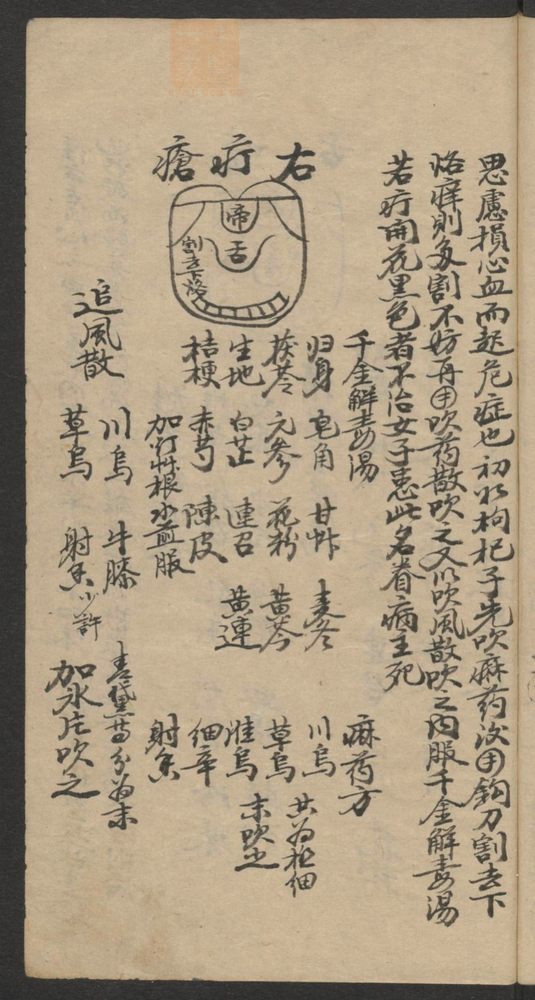 思慮損心血而起危症也初必枸杞子先吹麻药後用鈎刀割去下
烙痒則多割不妨再用吹药散吹之又以吹風散吹之内服千金解毒湯
若疔開花黑色者不治女子患此名眷病主死
千金解毒湯
归身 皂角 甘艸 麦冬
茯苓 元参 花粉 黄芩
生地 白芷 連召 黄連
桔梗 赤芍 陳皮
加灯艸根水煎服
麻药方
川烏
草烏
淮烏
細辛
射香
共為極細
末吹之
右疔瘡
帝
舌
割去下洛
追風散
川烏 牛膝 青黛等分為末
草烏 射香少許 加氷片吹之